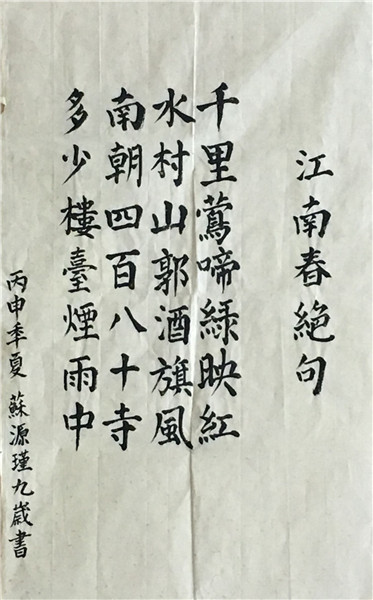 江南春絕句
千里鶯啼綠映紅
水村山郭酒旗風
南朝四百八十寺
多少樓臺煙雨中
丙申季夏 蘇源瑾九歲書